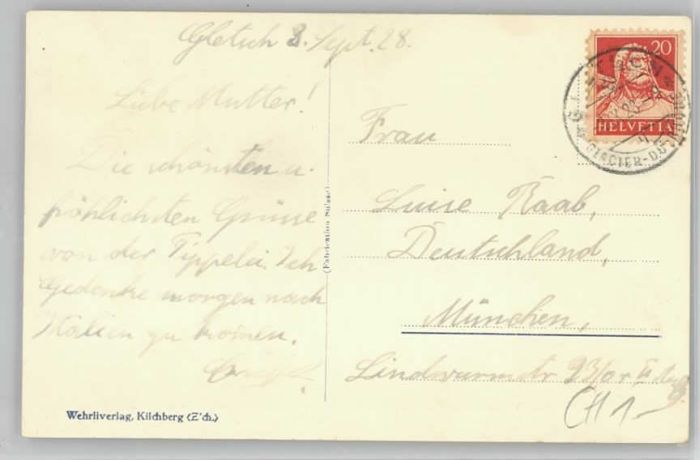 Gletsch 8. Sept. 28.
Liebe Mutter!
Die schönsten u.
fröhlichsten Grüsse
von der Tippelei. Ich
gedenke morgen nach
Italien zu kommen.
Frau
Luise Raab,
Deutschland,
München,
Lindwurmstr 93/0 r
20
HELVETIA
GLETSCH
GLACIER-DU-RHONE
(Fabrication Suisse)
Wehrliverlag, Kilchberg (Z'ch.)
CH 1-